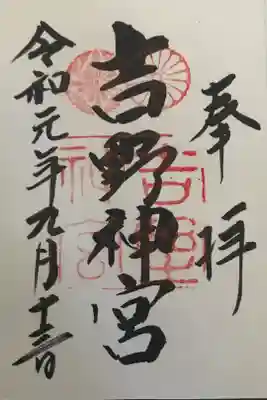 奉拝
吉野神宮
令和元年九月十三日